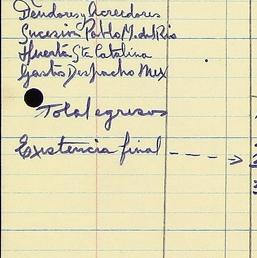 Deudores y Acreedores
Sucesión Pablo M. del Río
Huerta Sta Catalina
Gastos Despacho Mex
Total egresos
Existencia final - - - ->